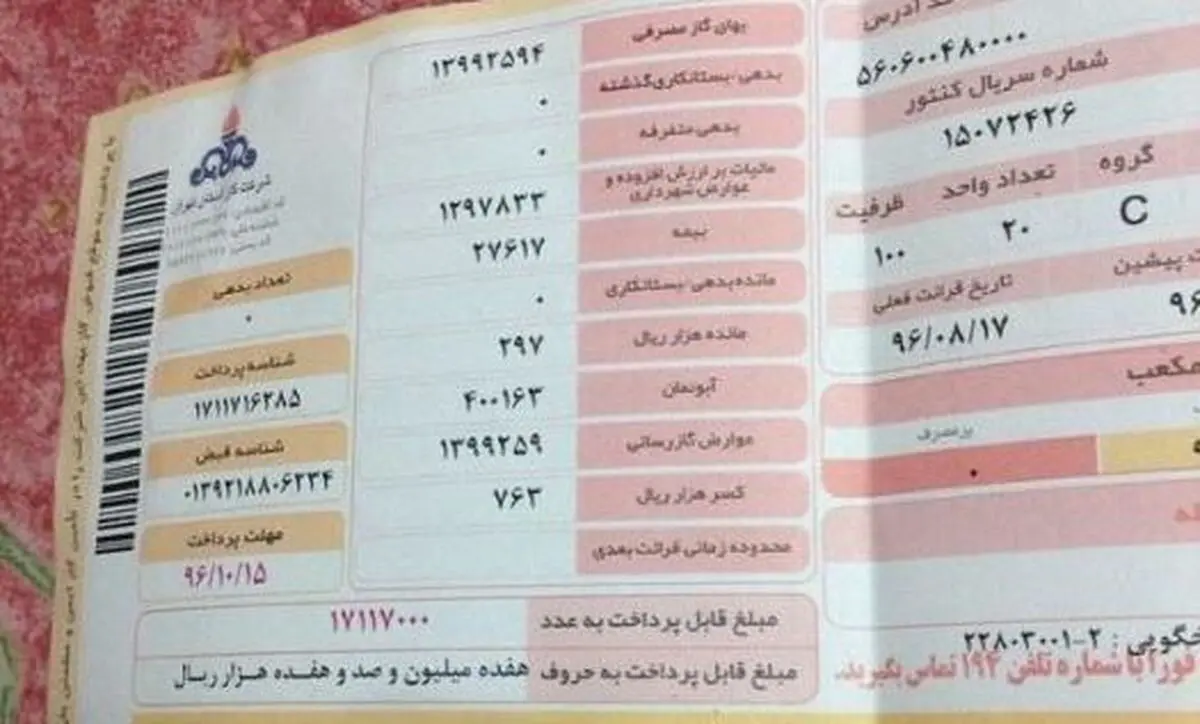 ۵۶۰۶۰۰۴۸۰۰۰۰
شماره سریال کنتور
۱۵۰۷۲۴۲۶
گروه تعداد واحد ظرفیت
C ۲۰ ۱۰۰
پیشین تاریخ قرائت فعلی
۹۶/۰۸/۱۷
مکعب
پرمصرف
۰
بهای گاز مصرفی ۱۳۹۹۲۵۹۴
بدهی/بستانکاری گذشته ۰
بدهی متفرقه ۰
مالیات بر ارزش افزوده و عوارض شهرداری ۱۲۹۷۸۳۳
بیمه ۲۷۶۱۷
مانده بدهی/بستانکاری ۰
مانده هزار ریال ۲۹۷
آبونمان ۴۰۰۱۶۳
عوارض گازرسانی ۱۳۹۹۲۵۹
کسر هزار ریال ۷۶۳
محدوده زمانی قرائت بعدی
شرکت گاز استان تهران
تعداد بدهی
۰
شناسه پرداخت
۱۷۱۱۷۱۶۲۸۵
شناسه قبض
۰۱۳۹۲۱۸۸۰۶۲۳۴
مهلت پرداخت
۹۶/۱۰/۱۵
مبلغ قابل پرداخت به عدد ۱۷۱۱۷۰۰۰
مبلغ قابل پرداخت به حروف هفده میلیون و صد و هفده هزار ریال
۲۲۸۰۳۰۰۱-۲
فورا با شماره تلفن ۱۹۴ تماس بگیرید.